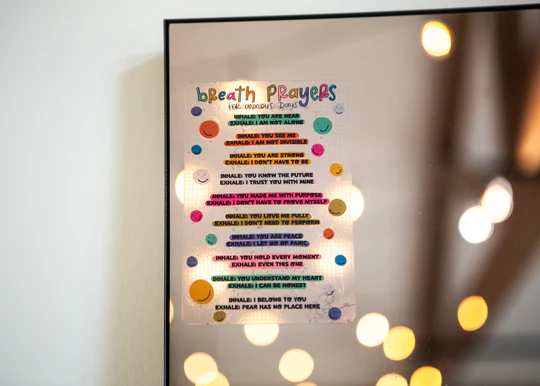 breath prayers
for anxious days
INHALE: YOU ARE NEAR
EXHALE: I AM NOT ALONE
INHALE: YOU SEE ME
EXHALE: I AM NOT INVISIBLE
INHALE: YOU ARE STRONG
EXHALE: I DON'T HAVE TO BE
INHALE: YOU KNOW THE FUTURE
EXHALE: I TRUST YOU WITH MINE
INHALE: YOU MADE ME WITH PURPOSE
EXHALE: I DON'T HAVE TO PROVE MYSELF
INHALE: YOU LOVE ME FULLY
EXHALE: I DON'T NEED TO PERFORM
INHALE: YOU ARE PEACE
EXHALE: I LET GO OF PANIC
INHALE: YOU HOLD EVERY MOMENT
EXHALE: EVEN THIS ONE
INHALE: YOU UNDERSTAND MY HEART
EXHALE: I CAN BE HONEST
INHALE: I BELONG TO YOU
EXHALE: FEAR HAS NO PLACE HERE